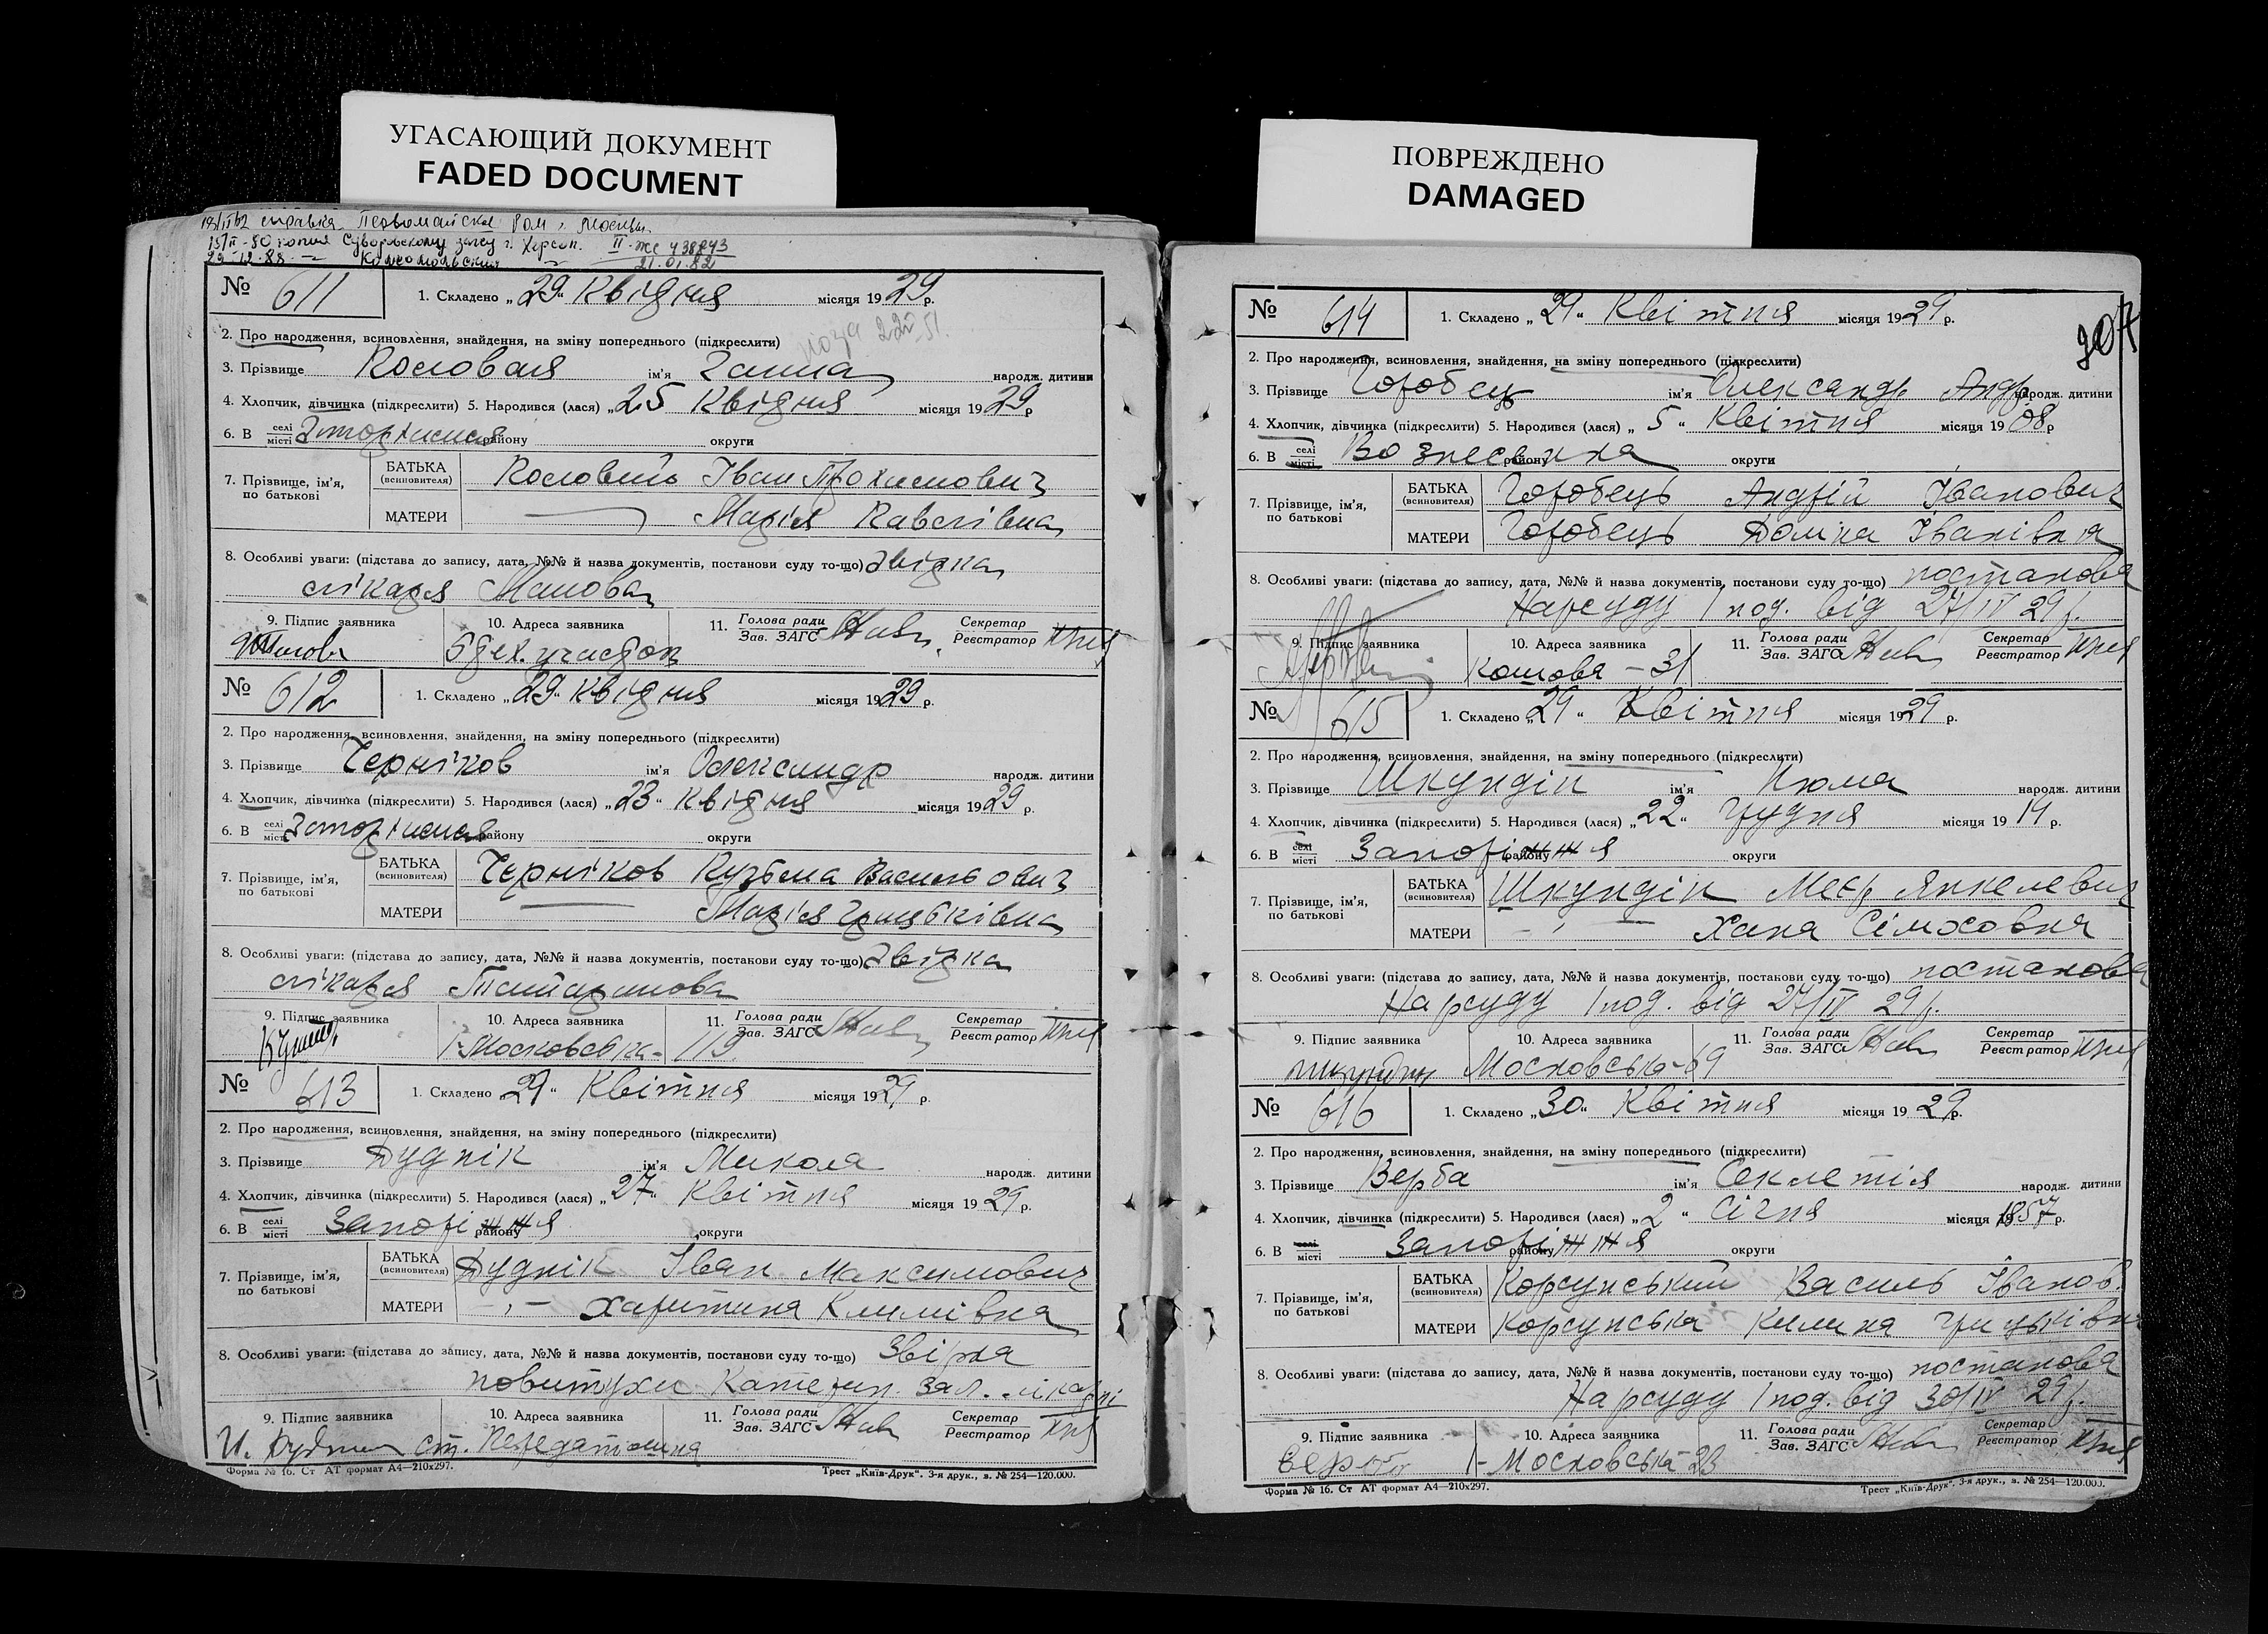 УГАСАЮЩИЙ ДОКУМЕНТ
FADED DOCUMENT
ПОВРЕЖДЕНО
DAMAGED
справка Первомайска г. Москвы
копия Суворовскому загсу г. Херсон. II-жс 438743
29.12.88 Комсомольский 21.01.82
№ 611 1. Складено „29“ Квітня місяця 1929 р.
2. Про народження, всиновлення, знайдення, на зміну попереднього (підкреслити)
3. Прізвище ім'я Ганна народж. дитини
4. Хлопчик, дівчинка (підкреслити) 5. Народився (лася) „25 Квітня місяця 1929 р
6. В селі місті Запоріжжя району округи
7. Прізвище, ім'я, по батькові
БАТЬКА (всиновителя) Іван
МАТЕРИ Марія Павлівна
8. Особливі уваги: (підстава до запису, дата, №№ й назва документів, постанови суду то-що) Звідка
лікаря
9. Підпис заявника 10. Адреса заявника 11. Голова ради Зав. ЗАГС Секретар Реєстратор
№ 612 1. Складено „29“ Квітня місяця 1929 р.
2. Про народження, всиновлення, знайдення, на зміну попереднього (підкреслити)
3. Прізвище Черніков ім'я Олександр народж. дитини
4. Хлопчик, дівчинка (підкреслити) 5. Народився (лася) „23“ Квітня місяця 1929 р.
6. В селі місті Запоріжжя району округи
7. Прізвище, ім'я, по батькові
БАТЬКА (всиновителя) Черніков Кузьма Васильович
МАТЕРИ Марія Грицьківна
8. Особливі уваги: (підстава до запису, дата, №№ й назва документів, постанови суду то-що) Звідка
лікаря
9. Підпис заявника 10. Адреса заявника 11. Голова ради Зав. ЗАГС Секретар Реєстратор
Московська - 119
№ 613 1. Складено „29“ Квітня місяця 1929 р.
2. Про народження, всиновлення, знайдення, на зміну попереднього (підкреслити)
3. Прізвище Дуднік ім'я Микола народж. дитини
4. Хлопчик, дівчинка (підкреслити) 5. Народився (лася) „27“ Квітня місяця 1929 р.
6. В селі місті Запоріжжя району округи
7. Прізвище, ім'я, по батькові
БАТЬКА (всиновителя) Дуднік Іван Максимович
МАТЕРИ -„- Харитина Климівна
8. Особливі уваги: (підстава до запису, дата, №№ й назва документів, постанови суду то-що) Звідка
повитухи Катерин. Зал. лікарні
9. Підпис заявника 10. Адреса заявника 11. Голова ради Зав. ЗАГС Секретар Реєстратор
И. Дудник ст. Передаточна
Форма № 16. Ст АТ формат А4—210х297. Трест „Київ-Друк“. 3-я друк., з. № 254—120.000.
207
№ 614 1. Складено „29“ Квітня місяця 1929 р.
2. Про народження, всиновлення, знайдення, на зміну попереднього (підкреслити)
3. Прізвище Горобець ім'я Олександр Андр. народж. дитини
4. Хлопчик, дівчинка (підкреслити) 5. Народився (лася) „5“ Квітня місяця 1908 р
6. В селі місті Вознесенка району округи
7. Прізвище, ім'я, по батькові
БАТЬКА (всиновителя) Горобець Андрій Іванович
МАТЕРИ Горобець Домна Іванівна
8. Особливі уваги: (підстава до запису, дата, №№ й назва документів, постанови суду то-що) постанова
Нарсуду 1 под. від 27/IV 29 р.
9. Підпис заявника 10. Адреса заявника 11. Голова ради Зав. ЗАГС Секретар Реєстратор
Кошова - 31
№ 615 1. Складено „29“ Квітня місяця 1929 р.
2. Про народження, всиновлення, знайдення, на зміну попереднього (підкреслити)
3. Прізвище Шкундін ім'я Нюма народж. дитини
4. Хлопчик, дівчинка (підкреслити) 5. Народився (лася) „22“ Грудня місяця 1919 р.
6. В селі місті Запоріжжя району округи
7. Прізвище, ім'я, по батькові
БАТЬКА (всиновителя) Шкундін Меєр Янкелевич
МАТЕРИ -„- Хана Сімховна
8. Особливі уваги: (підстава до запису, дата, №№ й назва документів, постанови суду то-що) постанова
Нарсуду 1 под. від 27/IV 29 р.
9. Підпис заявника 10. Адреса заявника 11. Голова ради Зав. ЗАГС Секретар Реєстратор
Московська - 69
№ 616 1. Складено „30“ Квітня місяця 1929 р.
2. Про народження, всиновлення, знайдення, на зміну попереднього (підкреслити)
3. Прізвище Верба ім'я Секлетія народж. дитини
4. Хлопчик, дівчинка (підкреслити) 5. Народився (лася) „2“ Січня місяця 1857 р.
6. В селі місті Запоріжжя району округи
7. Прізвище, ім'я, по батькові
БАТЬКА (всиновителя) Корсунський Василь Іванов.
МАТЕРИ Корсунська Килина Грицьківна
8. Особливі уваги: (підстава до запису, дата, №№ й назва документів, постанови суду то-що) постанова
Нарсуду 1 под. від 30/IV 29 р.
9. Підпис заявника 10. Адреса заявника 11. Голова ради Зав. ЗАГС Секретар Реєстратор
Верба 1 - Московська 23
Форма № 16. Ст АТ формат А4—210х297. Трест „Київ-Друк“. 3-я друк., з. № 254—120.000.